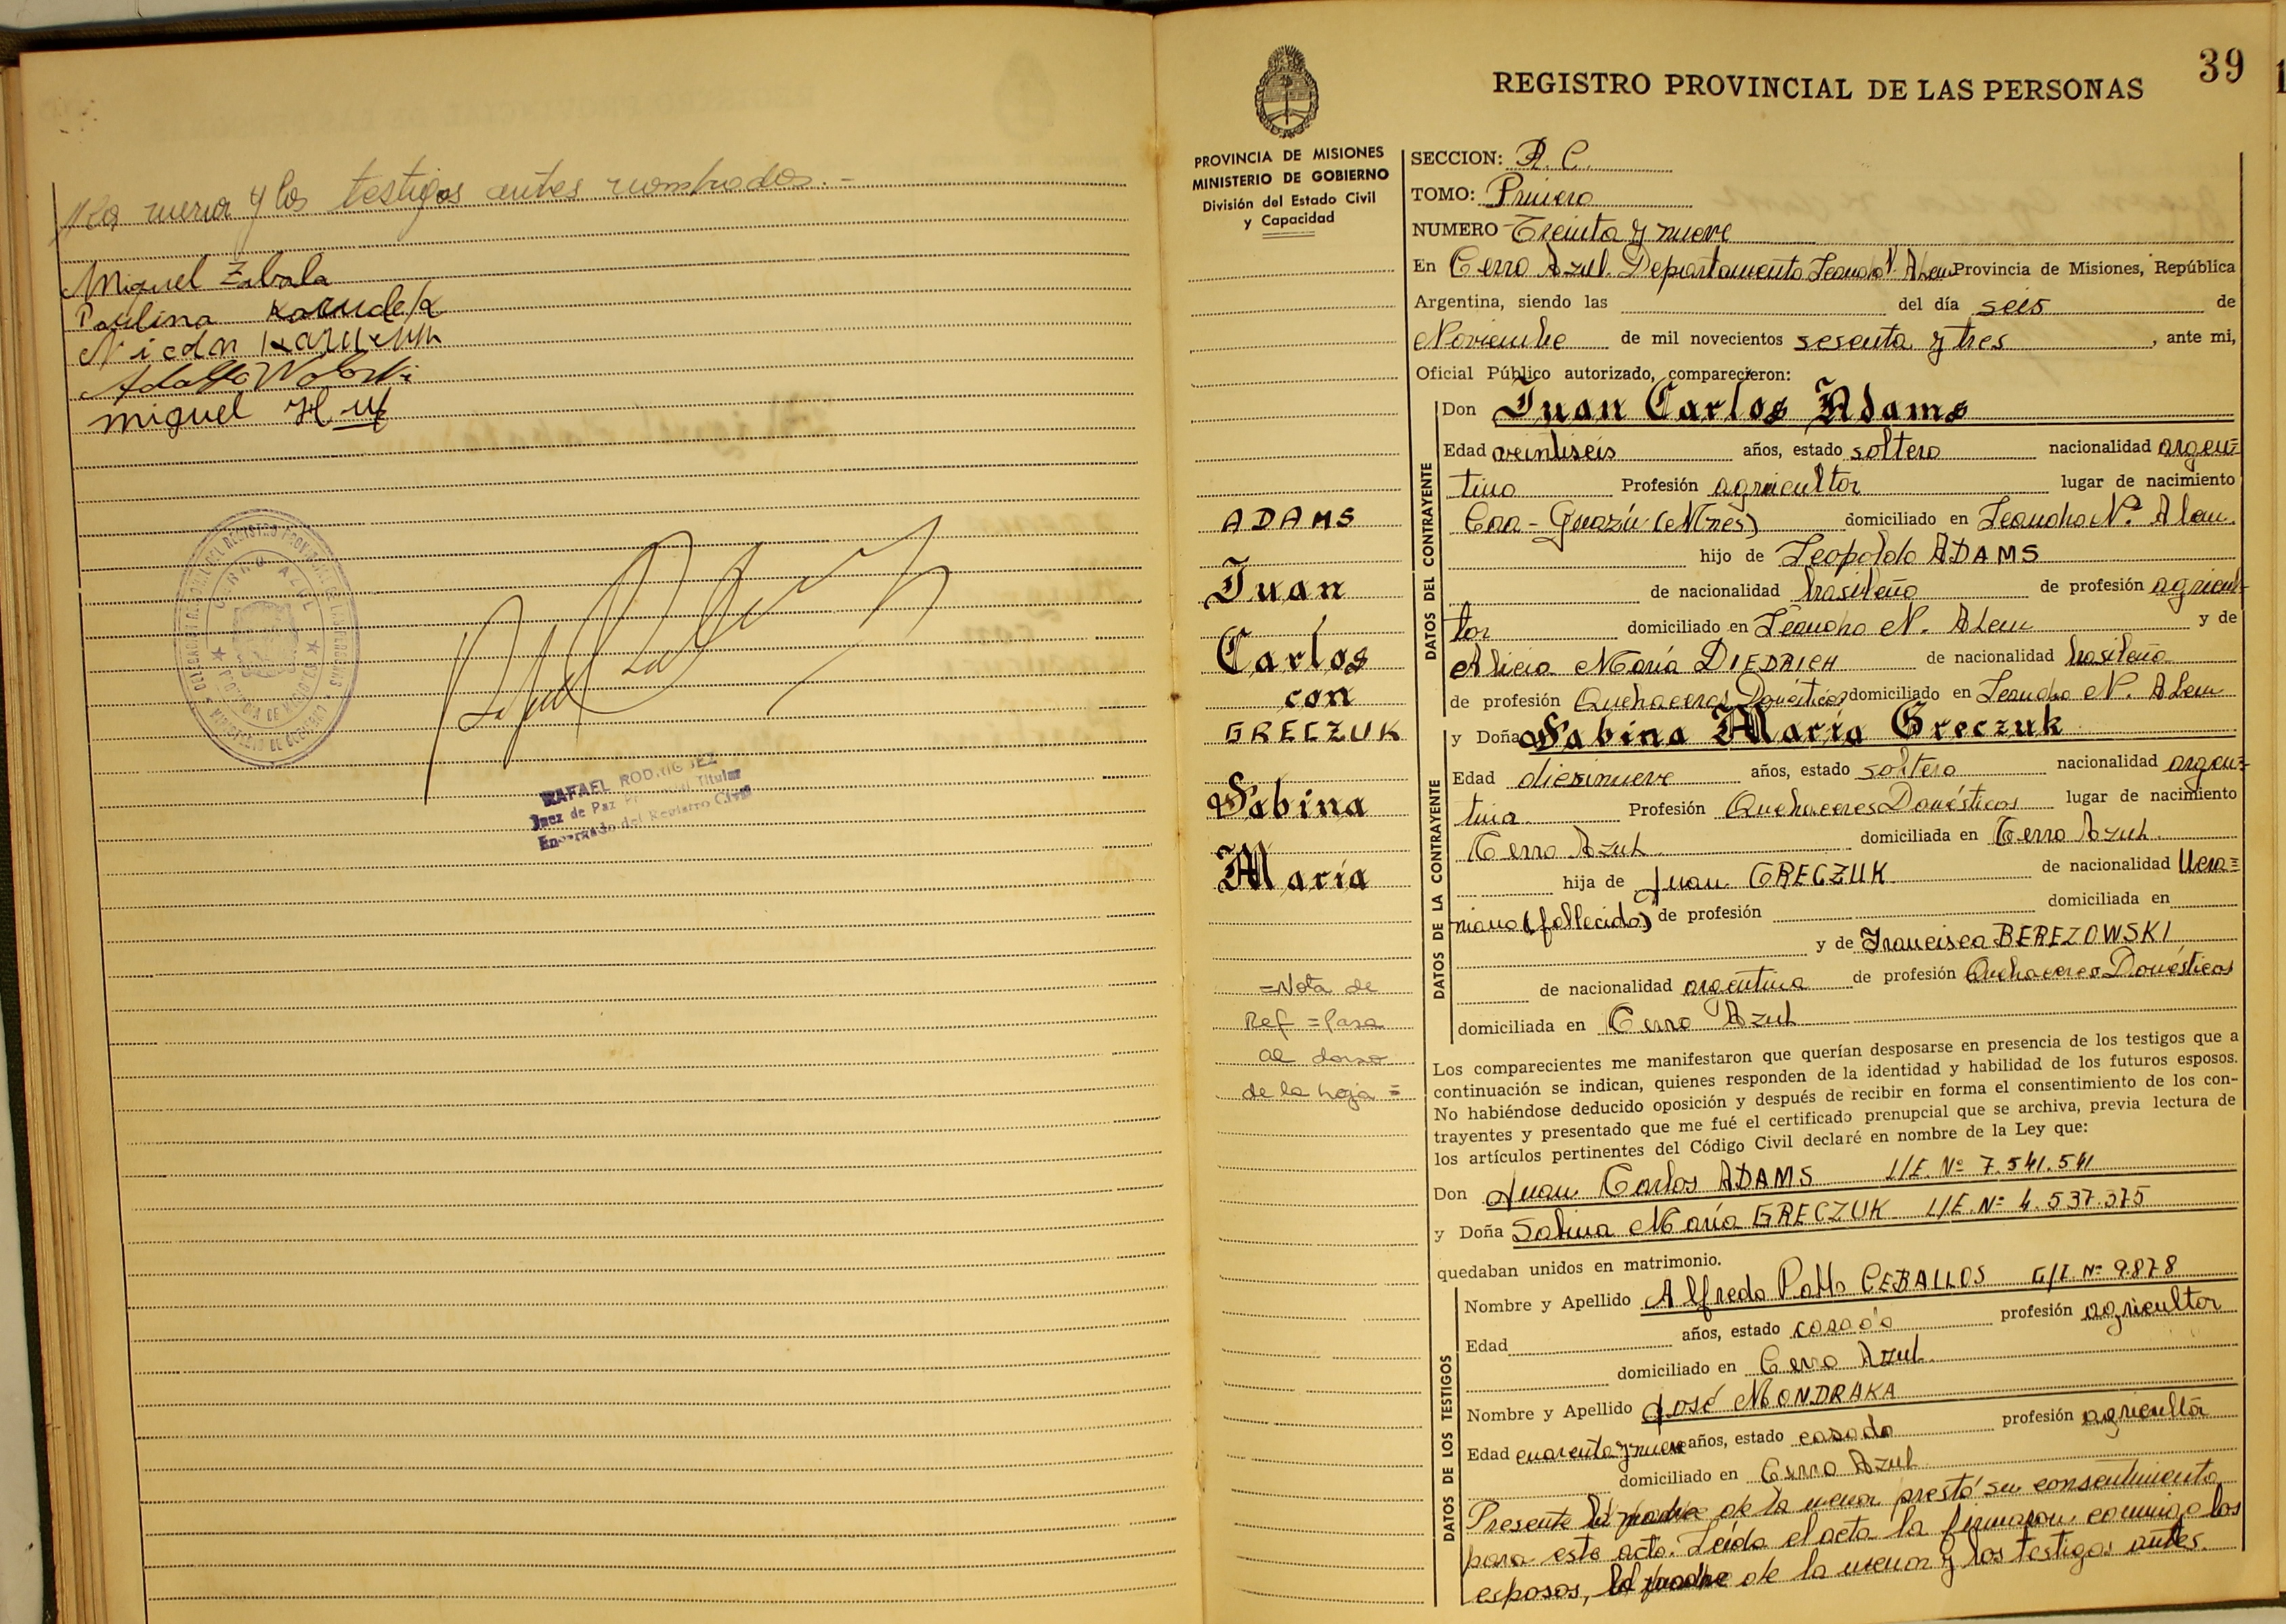 //la menor y los testigos antes nombrados.-
Miguel Zabala
Paulina
Miguel
CERRO AZUL
RAFAEL RODRIGUEZ
Juez de Paz Titular
Encargado del Registro Civil
39
REGISTRO PROVINCIAL DE LAS PERSONAS
PROVINCIA DE MISIONES
MINISTERIO DE GOBIERNO
División del Estado Civil
y Capacidad
ADAMS
Juan
Carlos
con
GRECZUK
Sabina
María
=Nota de
Ref = Pasa
al dorso
de la hoja =
SECCION: R. C.
TOMO: Primero
NUMERO Treinta y nueve
En Cerro Azul. Departamento Leandro N. Alem Provincia de Misiones, República
Argentina, siendo las del día seis de
Noviembre de mil novecientos sesenta y tres, ante mi,
Oficial Público autorizado, comparecieron:
DATOS DEL CONTRAYENTE
Don Juan Carlos Adams
Edad veintiseis años, estado soltero nacionalidad argen=
tino Profesión agricultor lugar de nacimiento
Caa-Guazú (Mnes) domiciliado en Leandro N. Alem.
hijo de Leopoldo ADAMS
de nacionalidad brasileño de profesión agricul-
tor domiciliado en Leandro N. Alem y de
Alicia María DIEDRICH de nacionalidad brasileña
de profesión Quehaceres Domésticos domiciliado en Leandro N. Alem
DATOS DE LA CONTRAYENTE
y Doña Sabina María Greczuk
Edad diesinueve años, estado soltera nacionalidad argen=
tina. Profesión Quehaceres Domésticos lugar de nacimiento
Cerro Azul domiciliada en Cerro Azul.
hija de Juan GRECZUK de nacionalidad Ucra=
niano (fallecido) de profesión domiciliada en
y de Francisca BEREZOWSKI
de nacionalidad argentina de profesión Quehaceres Domésticos
domiciliada en Cerro Azul
Los comparecientes me manifestaron que querían desposarse en presencia de los testigos que a
continuación se indican, quienes responden de la identidad y habilidad de los futuros esposos.
No habiéndose deducido oposición y después de recibir en forma el consentimiento de los con-
trayentes y presentado que me fué el certificado prenupcial que se archiva, previa lectura de
los artículos pertinentes del Código Civil declaré en nombre de la Ley que:
Don Juan Carlos ADAMS L/E. Nº 7.541.541
y Doña Sabina María GRECZUK L/E. Nº 4.537.375
quedaban unidos en matrimonio.
DATOS DE LOS TESTIGOS
Nombre y Apellido Alfredo Pablo CEBALLOS Nº 9.878
Edad años, estado casado profesión agricultor
domiciliado en Cerro Azul.
Nombre y Apellido José MONDRAKA
Edad cuarenta y nueve años, estado casado profesión agricultor
domiciliado en Cerro Azul
Presente la madre de la menor prestó su consentimiento
para este acto. Leída el acta la firmaron conmigo los
esposos, la madre de la menor y los testigos antes.